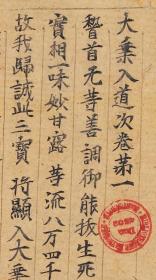 大乗入道次苐一
瞽首无等善調御能拔生死
實相一味妙甘露 等流八万四千
故我歸誠此三寶 将顯入大乗